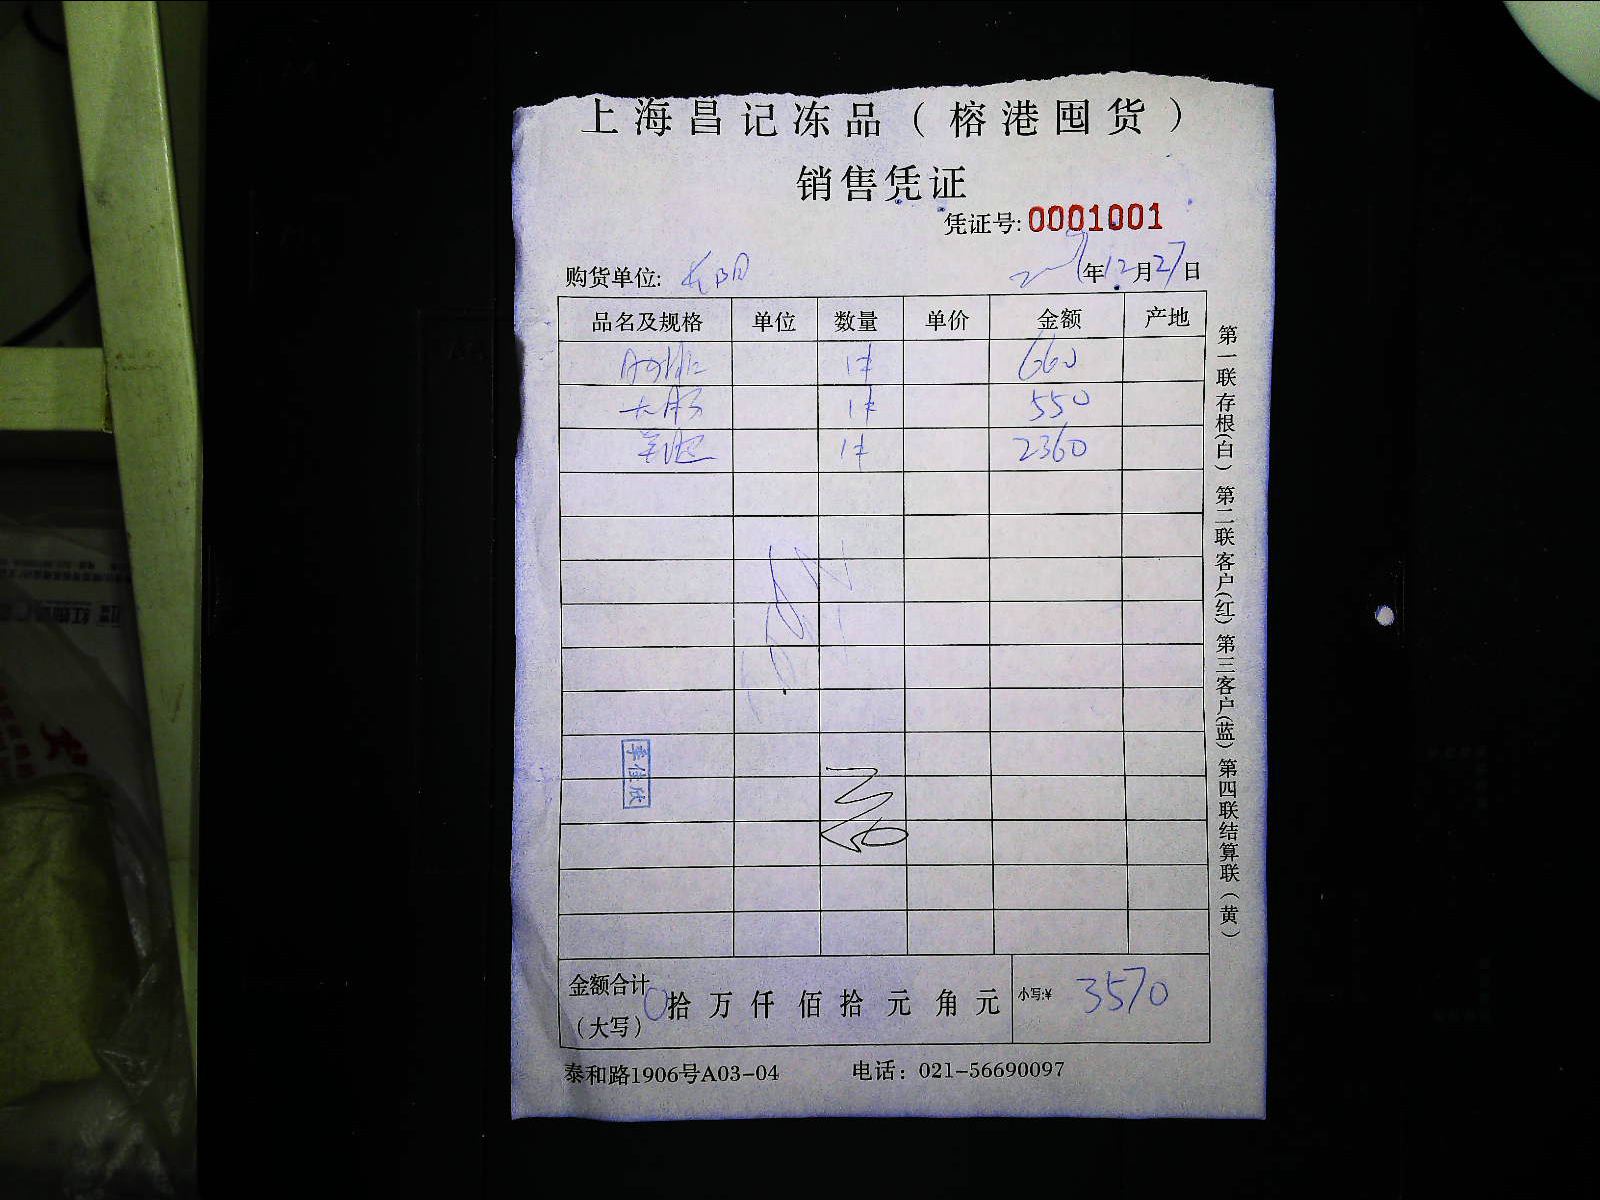 上海昌记冻品（榕港囤货）
销售凭证
凭证号: 0001001
购货单位: 长阳 年12月27日
品名及规格 单位 数量 单价 金额 产地
1件 660
大肠 1件 550
1件 2360
李佳欣
金额合计（大写） 0拾 万 仟 佰 拾 元 角 元 小写:¥ 3570
泰和路1906号A03-04 电话：021-56690097
第一联存根(白) 第二联客户(红) 第三客户(蓝) 第四联结算联（黄）